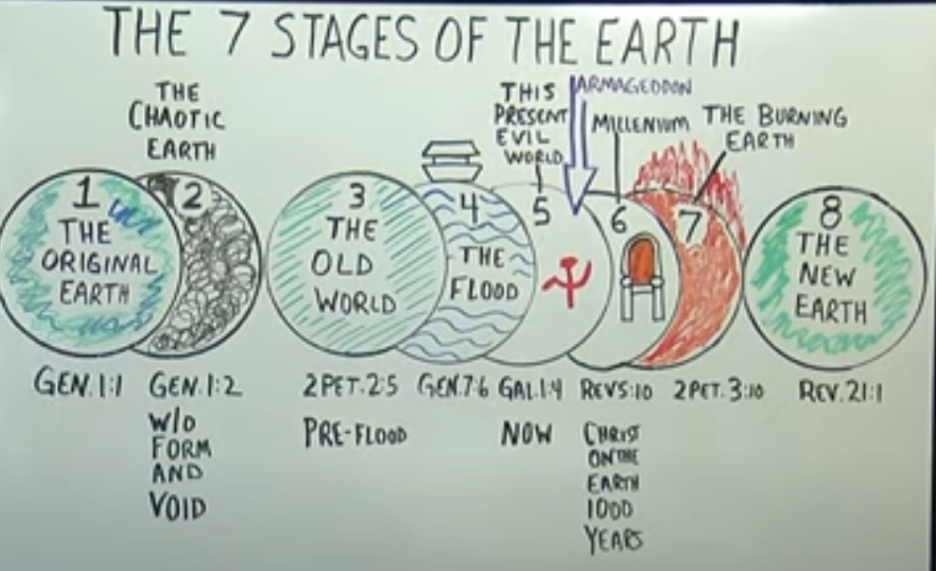 THE 7 STAGES OF THE EARTH
THE
CHAOTIC
EARTH
THIS
PRESENT
EVIL
WORLD
ARMAGEDDON
MILLENIUM
THE BURNING
EARTH
1
THE
ORIGINAL
EARTH
2
3
THE
OLD
WORLD
4
THE
FLOOD
5
6
7
8
THE
NEW
EARTH
GEN. 1:1
GEN. 1:2
W/O
FORM
AND
VOID
2 PET. 2:5
PRE-FLOOD
GEN. 7:6
GAL. 1:4
NOW
REV 5:10
CHRIST
ON THE
EARTH
1000
YEARS
2 PET. 3:10
REV. 21:1